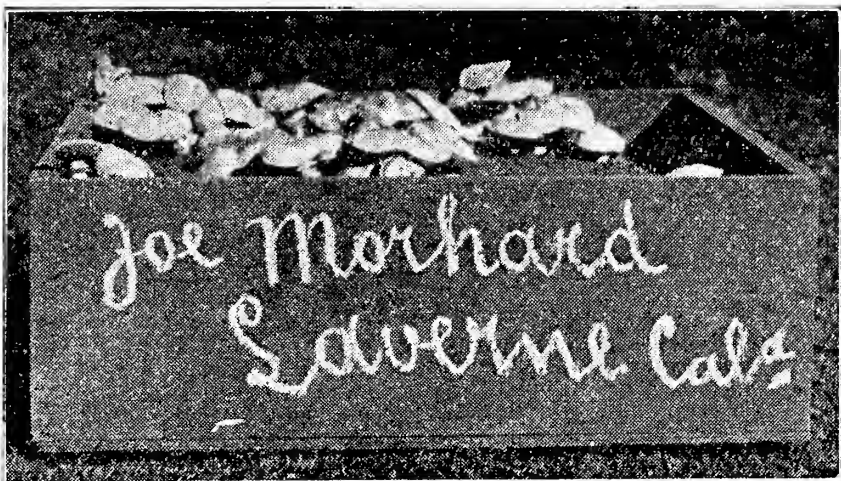 Joe Morhard
Laverne Cala